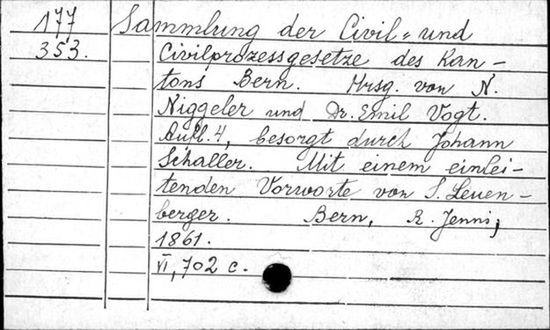 177 Sammlung der Civil= und
353. Civilprozessgesetze des Kan-
tons Bern. Hrsg. von N.
Niggeler und Dr. Emil Vogt.
Aufl. 4, besorgt durch Johann
Schaller. Mit einem einlei-
tenden Vorworte von S. Leuen-
berger. Bern, R. Jenni,
1861.
VI, 702 c.